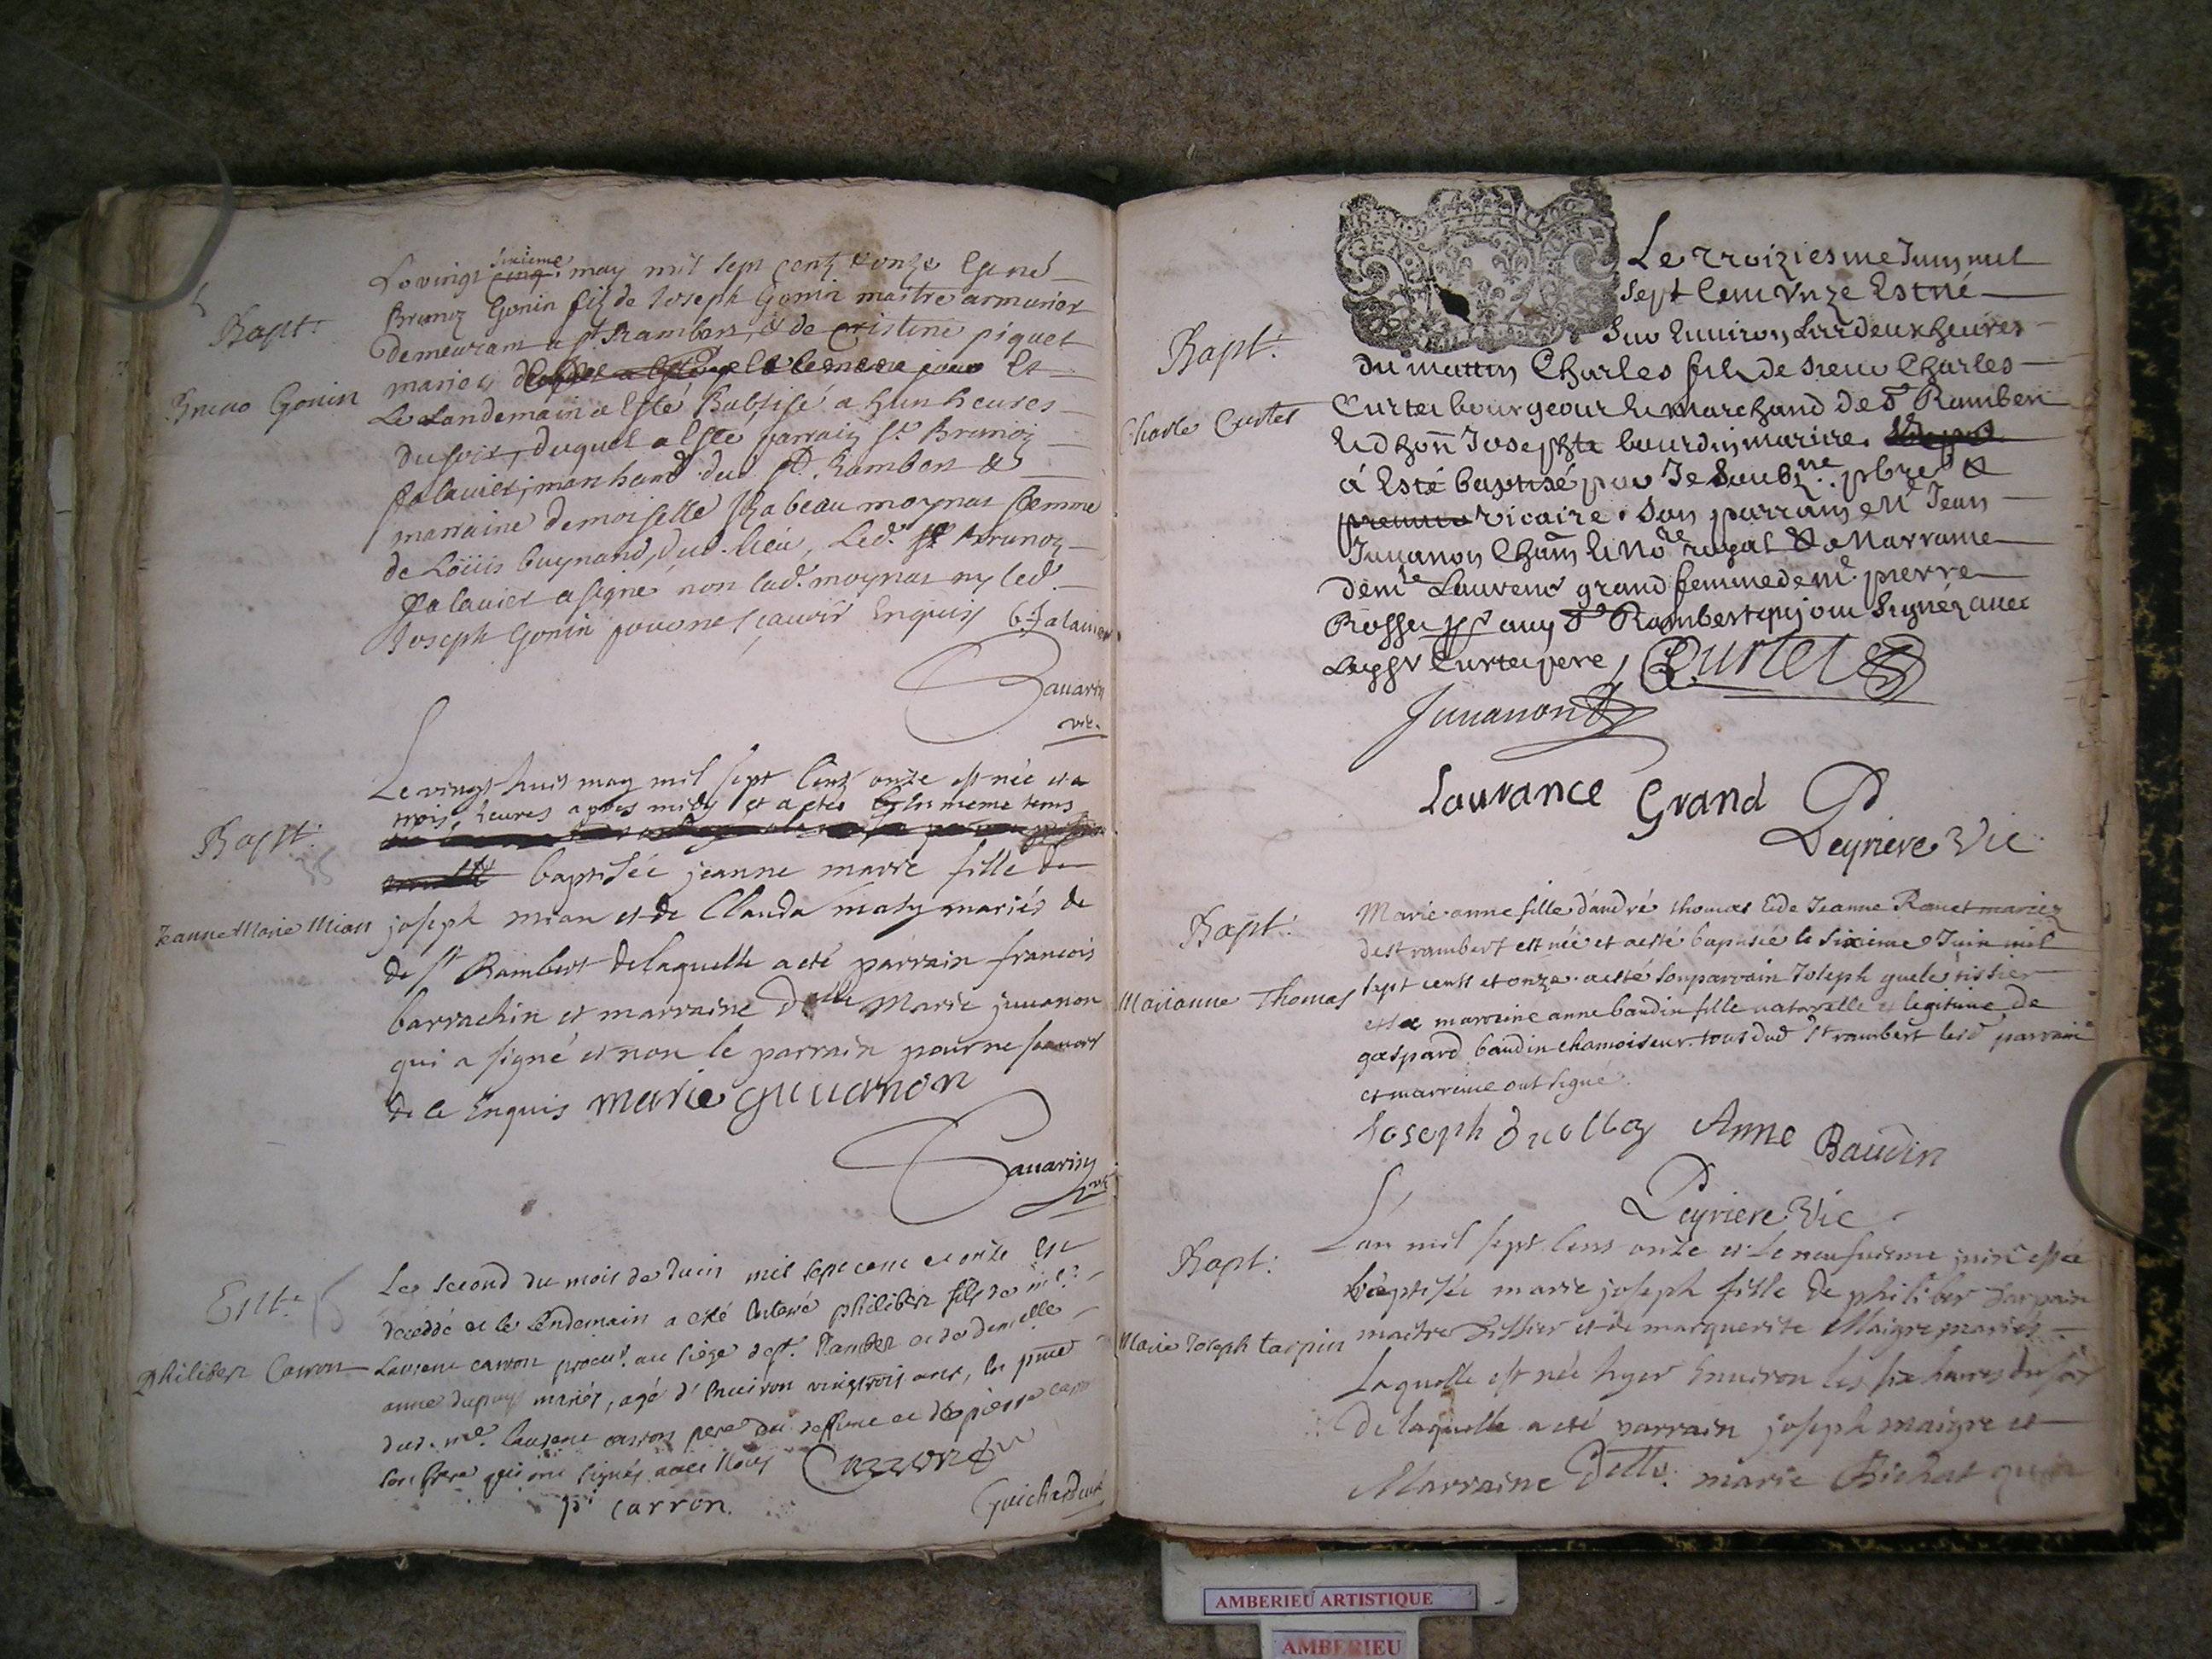 Bapt:
Bruno Gonin
Le vingt sixieme may mil sept centz & onze Est né
Brunoz Gonin filz de Joseph Gonin maitre armurier
demeurant a st Rambert, & de Cristine piquet
mariez le meme jour Et
Le Landemain a Esté Babtisé a huit heures
du soir, duquel a Este parrain sr. Brunoz
falauier, marchand dud. st. Rambert &
marraine demoiselle Isabeau moynat femme
de Loüis buynand, dud. lieu, Led. sr Brunoz
falauier a signé non lad. moynat ny led
Joseph Gonin pour ne sçauoir Enquis b. falauier
Sauarin
vic.
Bapt:
Jeanne Marie Mian
Le vingt huit may mil sept Centz onze est née et a
trois heures apres midy et a eté En meme tems
baptisée jeanne marie fille de
joseph mian et de Clauda maty mariés de
de st Rambert de laquelle a eté parrain francois
barrachin et marraine Dlle Marie juuanon
qui a signé et non le parrain pour ne scauoir
de ce Enquis marie guuanon
Sauarin
vic
Ent.
Philibert Carron
Le second du mois de Juin mil sept cent et onze Est
décédé et le lendemain a esté Enterré philibert fils de me.
Laurent carron procur. au siege de st. Rambert et de demelle
anne dupuy mariés, agé d'Enuiron vingt trois ans, En pnce
dud. me. laurent carron pere du deffunt et de pierre carron
son frere qui ont signés auec Nous Carron
p. carron.
Guichard cure
Bapt:
Charle Curtet
Le Troiziesme Juin mil
sept Cent Unze Est né
sur Enuiron Les deux heures
du mattin Charles fils de sieur Charles
Curtet bourgeois Et marchand de St Rambert
Et d'honn Josephte bourdin mariés.
à Esté baptisé par Je Soubz.né pbre &
premier vicaire. Son parrain Me Jean
Juuanon Cham Et No.re royal & Marraine
dem.le Laurence grand femme de me. pierre
Rosset aud St Rambert qui ont signéz auec
Led sr Curtet pere, Curtet
Juuanon
Laurance Grand
Peyriere Vic
Bapt:
Marianne Thomas
Marie-anne fille d'andré thomas Et de Jeanne Ronet mariez
de st rambert est née et a esté baptisée le sixieme Juin mil
sept cents et onze. a esté son parrain Joseph tissier
et sa marreine anne baudin fille naturelle et legitime de
gaspard baudin chamoiseur. tous dud St rambert lesd parrain
et marreine ont signe.
Joseph Anne Baudin
Peyriere Vic
Bapt:
Marie Joseph tarpin
L'an mil sept Cens onze et le neufuieme juin est été
baptisée marie joseph fille de philiber tarpain
maitre tissier et de marguerite Maigre mariés
Laquelle est née hyer Enuiron les six heures du soir
de laquelle a eté parrain joseph maigre et
Marraine Delle. marie Bichat qui
AMBERIEU ARTISTIQUE
AMBERIEU